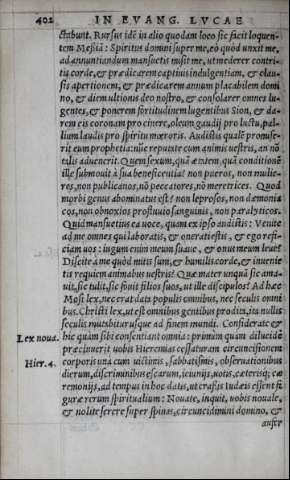 402 IN EVANG. LVCAE
ctabunt. Rursus idē in alio quodam loco sic facit loquen-
tem Meßiā: Spiritus domini super me, eò quòd unxit me,
ad annuntiandum mansuetis misit me, ut mederer contri-
tis corde, & prædicarem captiuis indulgentiam, & clau-
sis apertionem, & prædicarem annum placabilem domi
no, & diem ultionis deo nostro, & consolarer omnes lu-
gentes, & ponerem fortitudinem lugentibus Sion, & da-
rem eis coronam pro cinere, oleum gaudij pro luctu, pal-
lium laudis pro spiritu mœroris. Audistis qualē promise-
rit eum prophetia: nūc reputate cum animis uestris, an nō
talis aduenerit. Quem sexum, quā ætatem, quā conditionē
ille submouit à sua beneficentia? non pueros, non mulie-
res, non publicanos, nō peccatores, nō meretrices. Quod
morbi genus abominatus est? non leprosos, non dæmonia
cos, non obnoxios profluuio sanguinis, non paralyticos.
Quid mansuetius ea uoce, quam ex ipso audistis: Venite
ad me omnes qui laboratis, & onerati estis, & ego refi-
ciam uos: iugum enim meum suaue, & onus meum leue?
Discite à me quòd mitis sum, & humilis corde, & inuenie
tis requiem animabus uestris? Quæ mater unquā sic ama-
uit, sic tulit, sic fouit filios suos, ut ille discipulos? Ad hæc
Mosi lex, nec erat data populis omnibus, nec seculis omni
bus. Christi lex, ut est omnibus gentibus prodita, ita nullis
seculis mutabitur usque ad finem mundi. Considerate &
Lex noua. hîc quàm sibi consentiant omnia: primùm quàm dilucidè
præcinuerit uobis Hieremias cessaturam circuncisionem
Hier. 4. corporis unà cum uictimis, sabbatismis, obseruationibus
dierum, discriminibus escarum, ieiunijs, uotis, cæterisque cæ
remonijs, ad tempus in hoc datis, ut craßis Iudæis essent fi
guræ rerum spiritualium: Nouate, inquit, uobis nouale,
& nolite serere super spinas, circuncidimini domino, &
aufer